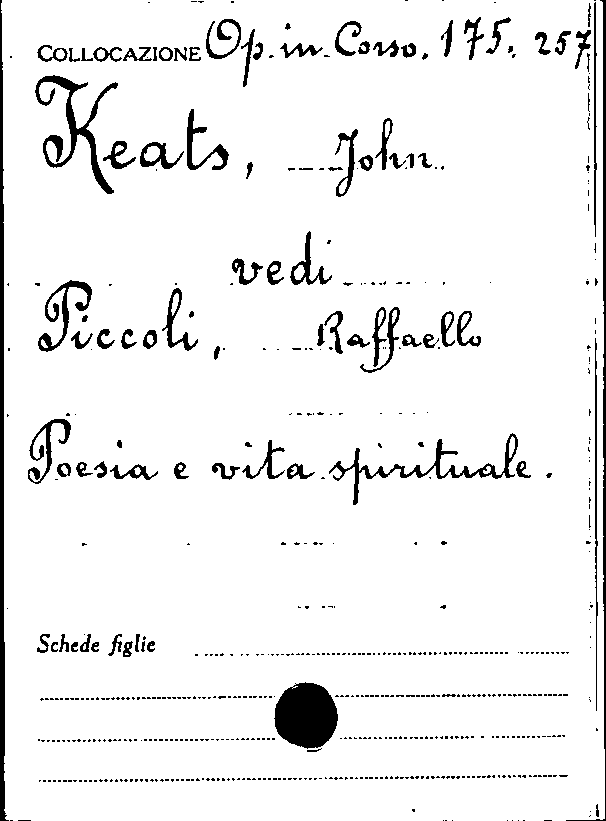 COLLOCAZIONE Op. in Corso. 175. 257
Keats, John.
vedi
Piccoli, Raffaello
Poesia e vita spirituale.
Schede figlie